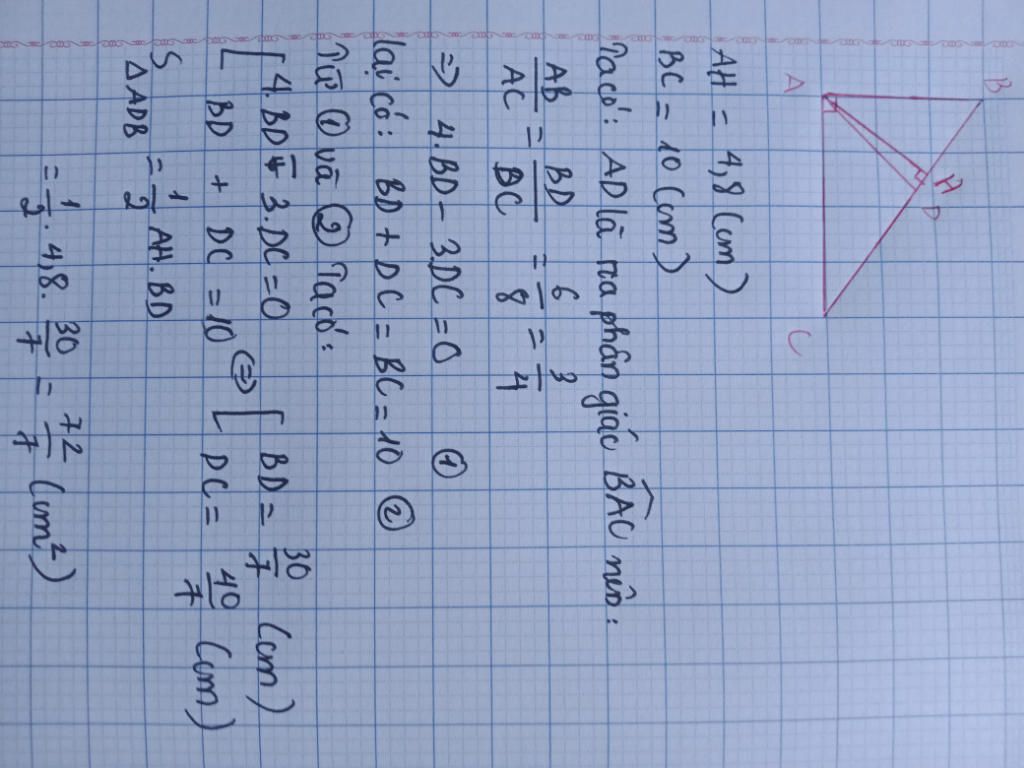 B
A H
D
C
AH = 4,8 (cm)
BC = 10 (cm)
Ta có: AD là tia phân giác BAC nên:
AB/AC = BD/DC = 6/8 = 3/4
=> 4.BD - 3.DC = 0 ①
lại có: BD + DC = BC = 10 ②
Từ ① và ② Ta có:
[ 4.BD - 3.DC = 0 <=> [ BD = 30/7 (cm)
BD + DC = 10 DC = 40/7 (cm)
S ΔADB = 1/2 AH.BD
= 1/2 . 4,8 . 30/7 = 72/7 (cm²)